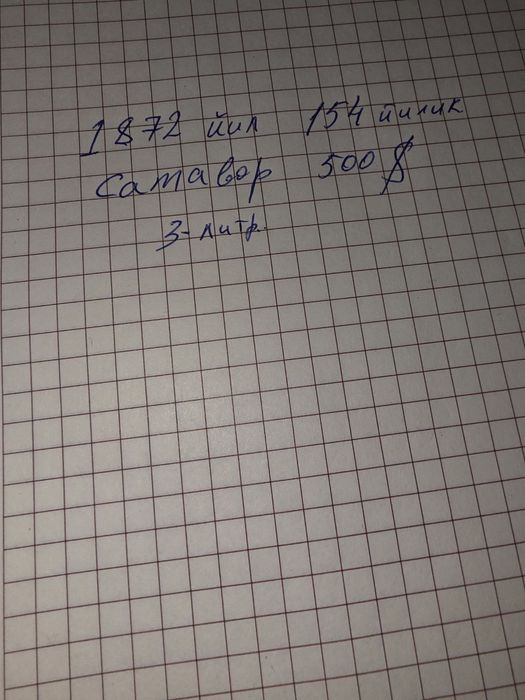 1872 йил 154 йиллик
Самавор 500 $
3-литр.